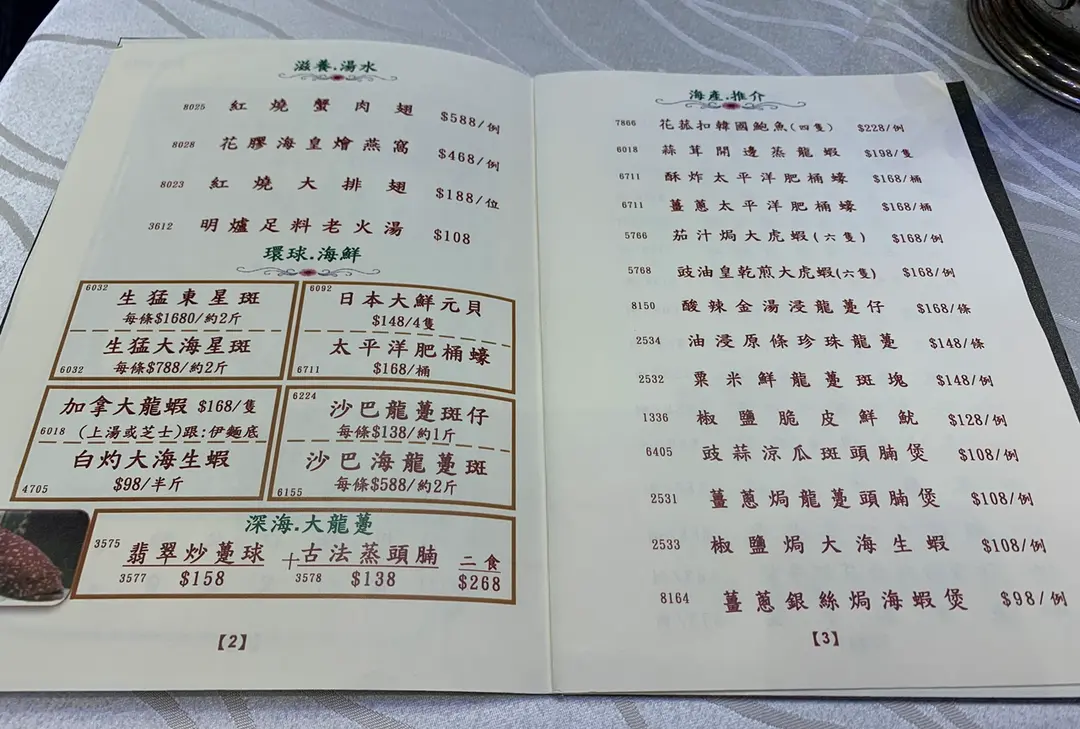 滋養.湯水
8025 紅燒蟹肉翅 $588/例
8028 花膠海皇燴燕窩 $468/例
8023 紅燒大排翅 $188/位
3612 明爐足料老火湯 $108
環球.海鮮
6032
生猛東星斑
每條$1680/約2斤
生猛大海星斑
6032 每條$788/約2斤
6092
日本大鮮元貝
$148/4隻
太平洋肥桶蠔
6711 $168/桶
加拿大龍蝦 $168/隻
6018 (上湯或芝士)跟:伊麵底
白灼大海生蝦
4705 $98/半斤
6224
沙巴龍躉斑仔
每條$138/約1斤
沙巴海龍躉斑
6155 每條$588/約2斤
深海.大龍躉
3575 翡翠炒躉球 + 古法蒸頭腩 二食
3577 $158 3578 $138 $268
【2】
海產.推介
7866 花菰扣韓國鮑魚(四隻) $228/例
6018 蒜茸開邊蒸龍蝦 $198/隻
6711 酥炸太平洋肥桶蠔 $168/桶
6711 薑蔥太平洋肥桶蠔 $168/桶
5766 茄汁焗大虎蝦(六隻) $168/例
5768 豉油皇乾煎大虎蝦(六隻) $168/例
8150 酸辣金湯浸龍躉仔 $168/條
2534 油浸原條珍珠龍躉 $148/條
2532 粟米鮮龍躉斑塊 $148/例
1336 椒鹽脆皮鮮魷 $128/例
6405 豉蒜涼瓜斑頭腩煲 $108/例
2531 薑蔥焗龍躉頭腩煲 $108/例
2533 椒鹽焗大海生蝦 $108/例
8164 薑蔥銀絲焗海蝦煲 $98/例
【3】